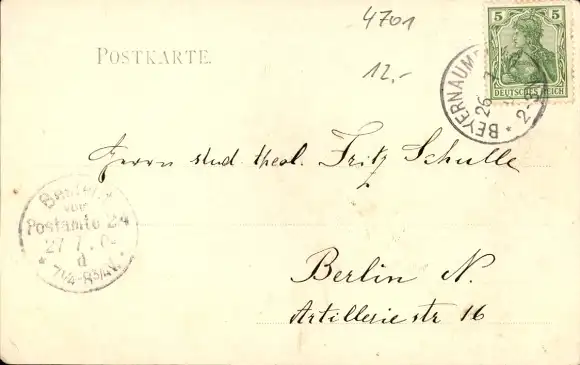 4701
12.-
POSTKARTE.
5 5
DEUTSCHES REICH
BEYERNAUM
26
* 2-3
Herrn stud. theol. Fritz Schulle
Postamte 24
27 7.
d
* 7¼-8¾ V. *
Berlin N.
Artilleriestr 16